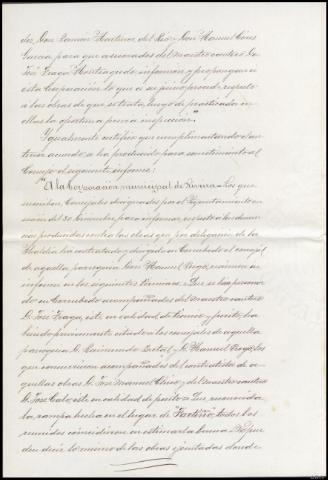 des Don Ramón Martínez del Río y Don Manuel
García, para que asesorados del maestro cantero Don
José Fraga Monteagudo, informen y propongan á
esta Corporación lo que á su juicio procede respeto
á las obras de que se trata, luego de practicada en
ellas la oportuna previa inspección".
Igualmente certifico que cumplimentando el an-
terior acuerdo, se ha producido para conocimiento del
Consejo el siguiente informe:
"A la Corporación municipal de Riveira = Los que
suscriben, Concejales designados por el Ayuntamiento en
sesión del 30 Diciembre para informar respecto á las denun-
cias producidas contra las obras que por delegación de la
Alcaldía ha contratado y dirigido en Corrubedo el concejal
de aquella parroquia Don Manuel Rego, evacúan su
informe en los siguientes términos = Que se han persona-
do en Corrubedo acompañados del maestro cantero
D. José Fraga, este en calidad de técnico y perito, ha-
biendo previamente citado á los concejales de aquella
parroquia D. Raimundo y D. Manuel Rego, los
que concurrieron acompañados del contratista de a-
quellas obras D. José Manuel y del maestro cantero
D. José Calo, este en calidad de perito = Que reconocida
la rampa hecha en el lugar de todos los
reunidos coincidieron en estimarla buena = Que
den diez lo mismo de las obras ejecutadas donde